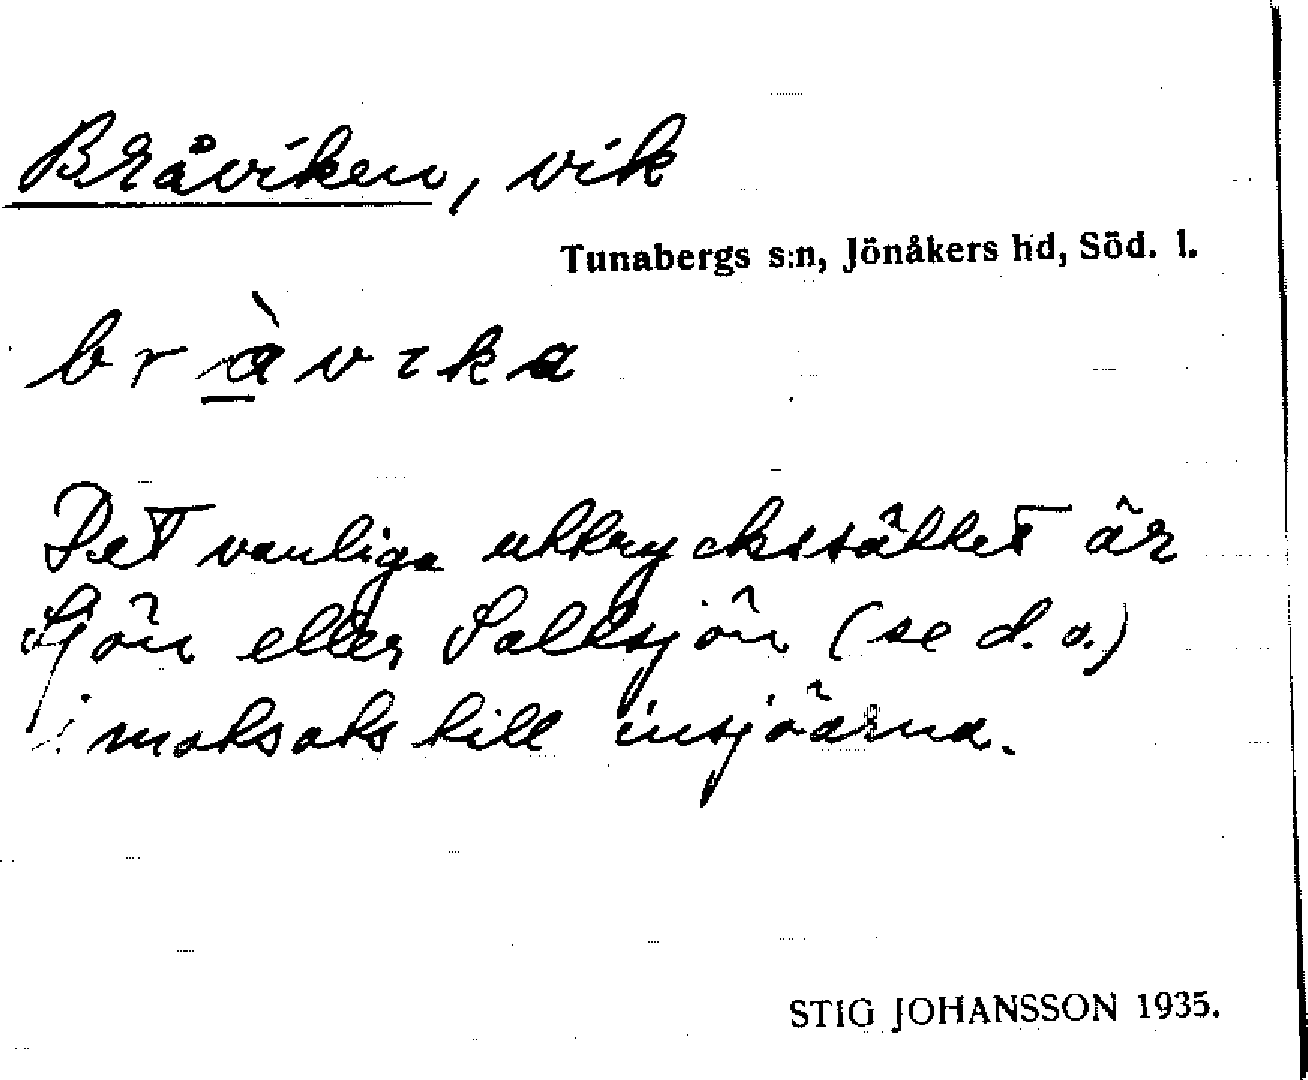 Bråviken, vik
Tunabergs s:n, Jönåkers hd, Söd. l.
br&#x61;̀vıka
Det vanliga uttryckssättet är
Sjön eller Saltsjön (se d. o.)
i motsats till insjöarna.
STIG JOHANSSON 1935.